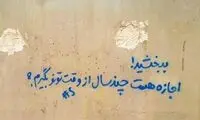 ببخشید!
اجازه هست چند سال از وقت تو بگیرم؟